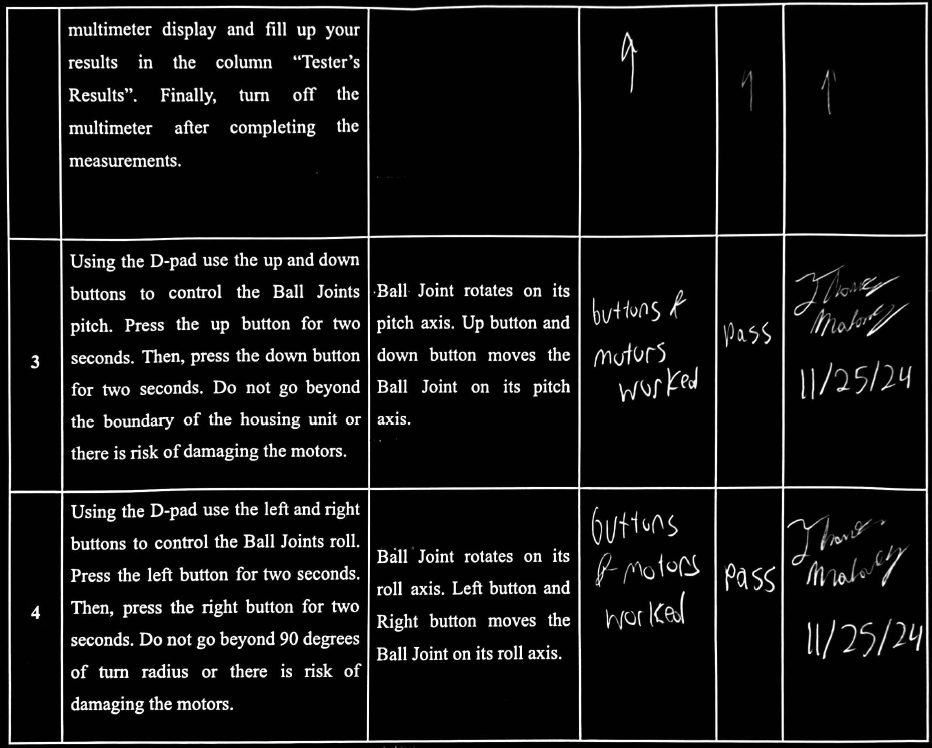 multimeter display and fill up your
results in the column “Tester’s
Results”. Finally, turn off the
multimeter after completing the
measurements.
↑
↑
↑
3
Using the D-pad use the up and down
buttons to control the Ball Joints
pitch. Press the up button for two
seconds. Then, press the down button
for two seconds. Do not go beyond
the boundary of the housing unit or
there is risk of damaging the motors.
Ball Joint rotates on its
pitch axis. Up button and
down button moves the
Ball Joint on its pitch
axis.
buttons &
motors
worked
pass
Thomas
Maloney
11/25/24
4
Using the D-pad use the left and right
buttons to control the Ball Joints roll.
Press the left button for two seconds.
Then, press the right button for two
seconds. Do not go beyond 90 degrees
of turn radius or there is risk of
damaging the motors.
Ball Joint rotates on its
roll axis. Left button and
Right button moves the
Ball Joint on its roll axis.
buttons
& motors
worked
pass
Thomas
Maloney
11/25/24